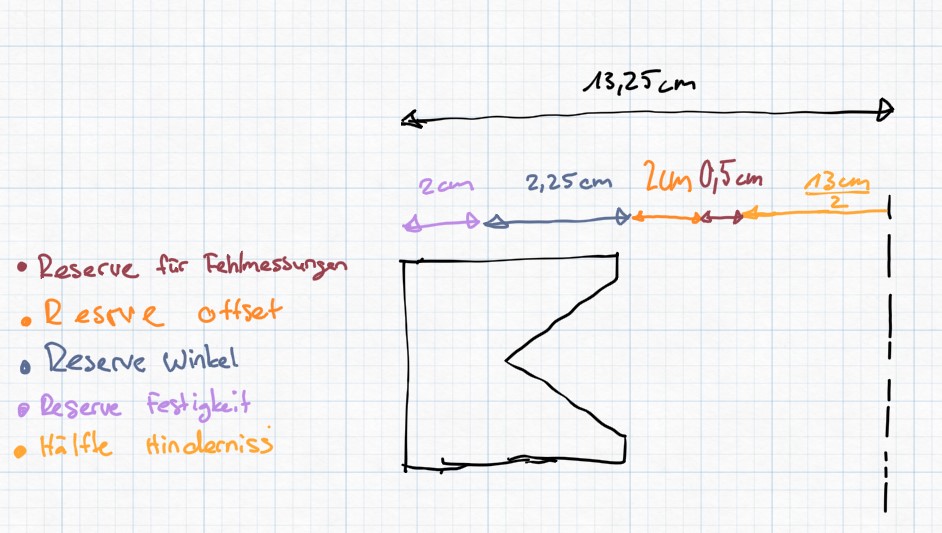 13,25cm
2cm
2,25cm
2cm
0,5cm
13cm
2
• Reserve für Fehlmessungen
• Resrve offset
• Reserve Winkel
• Reserve Festigkeit
• Hälfte Hinderniss